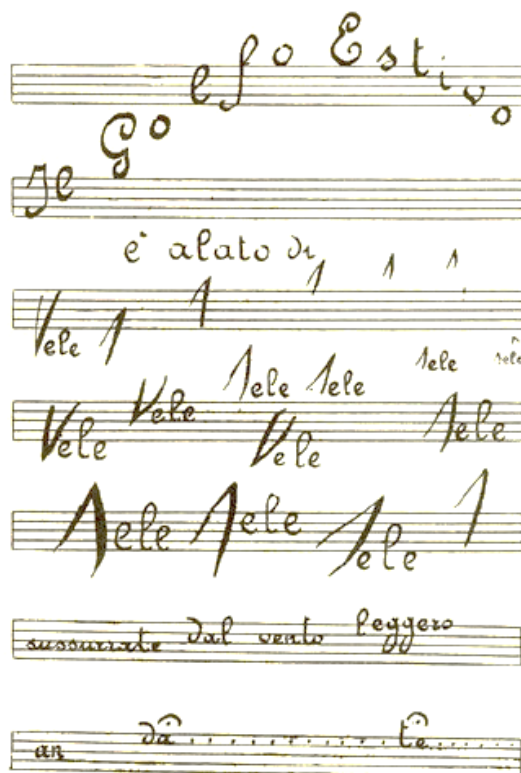 Il Golfo Estivo
è alato di
Vele
Vele Vele Vele Vele
Vele Vele Vele Vele
Vele Vele Vele
sussurrate dal vento leggero
an da ........ te ......